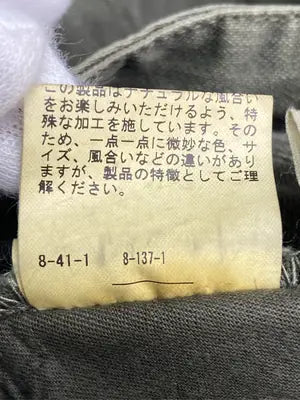 この製品はナチュラルな風合い
をお楽しみいただけるよう、特
殊な加工を施しています。その
ため、一点一点に微妙な色、サ
イズ、風合いなどの違いがあり
ますが、製品の特徴としてご理
解ください。
8-41-1 8-137-1